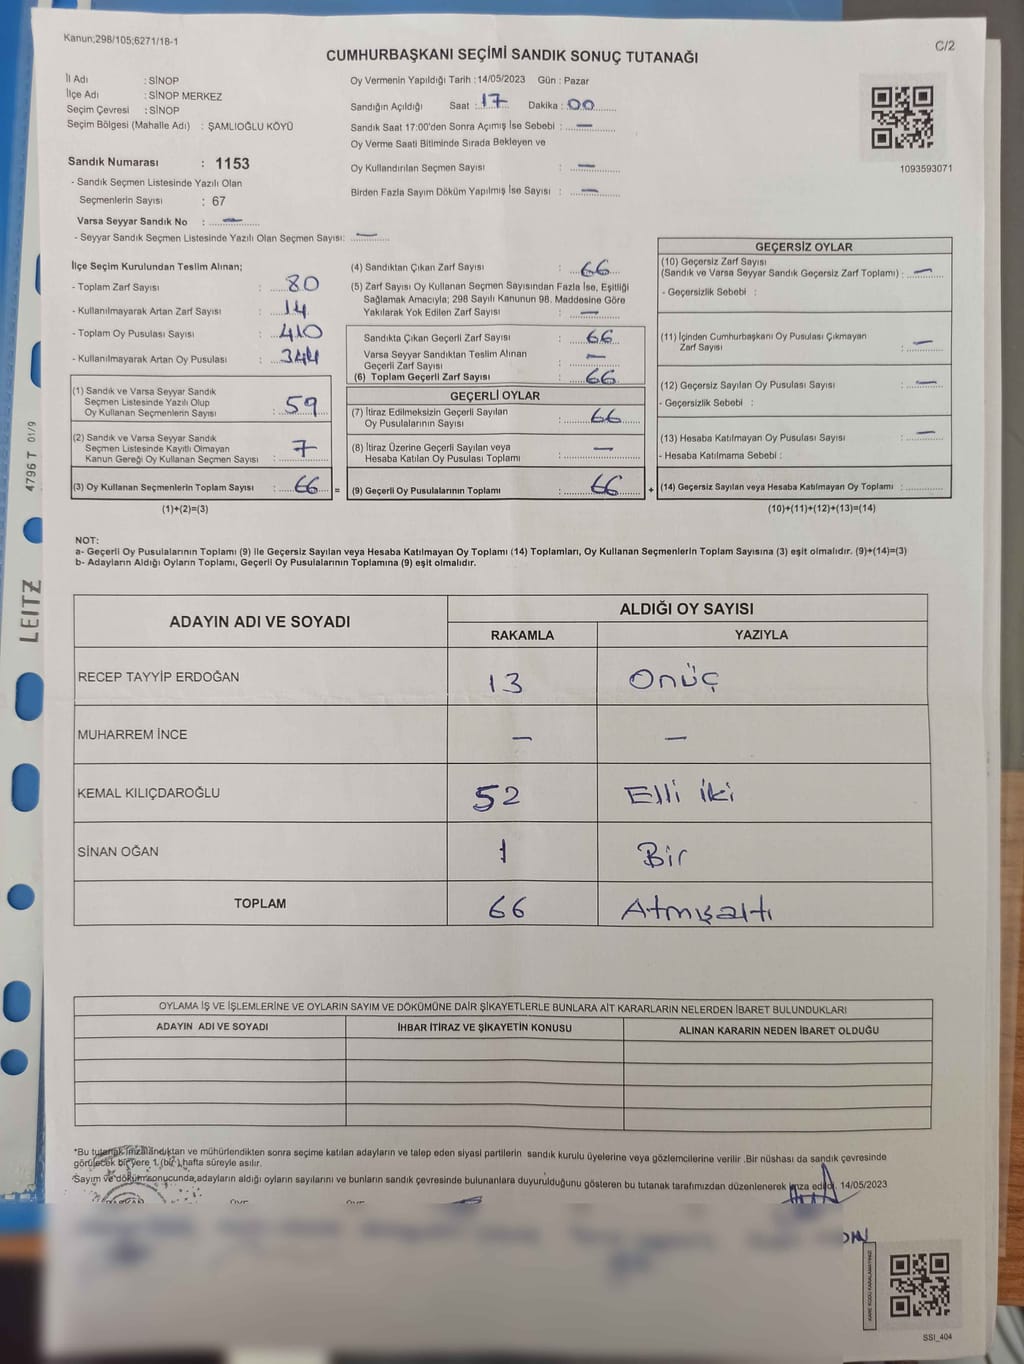 Kanun;298/105;6271/18-1
C/2
CUMHURBAŞKANI SEÇİMİ SANDIK SONUÇ TUTANAĞI
İl Adı : SİNOP
İlçe Adı : SİNOP MERKEZ
Seçim Çevresi : SİNOP
Seçim Bölgesi (Mahalle Adı) : ŞAMLIOĞLU KÖYÜ
Sandık Numarası : 1153
- Sandık Seçmen Listesinde Yazılı Olan
Seçmenlerin Sayısı : 67
Varsa Seyyar Sandık No : —
- Seyyar Sandık Seçmen Listesinde Yazılı Olan Seçmen Sayısı: —
Oy Vermenin Yapıldığı Tarih : 14/05/2023 Gün : Pazar
Sandığın Açıldığı Saat : 17 Dakika : 00
Sandık Saat 17:00'den Sonra Açımış İse Sebebi : —
Oy Verme Saati Bitiminde Sırada Bekleyen ve
Oy Kullandırılan Seçmen Sayısı : —
Birden Fazla Sayım Döküm Yapılmış İse Sayısı : —
1093593071
İlçe Seçim Kurulundan Teslim Alınan;
- Toplam Zarf Sayısı : 80
- Kullanılmayarak Artan Zarf Sayısı : 14
- Toplam Oy Pusulası Sayısı : 410
- Kullanılmayarak Artan Oy Pusulası : 344
(1) Sandık ve Varsa Seyyar Sandık
Seçmen Listesinde Yazılı Olup
Oy Kullanan Seçmenlerin Sayısı : 59
(2) Sandık ve Varsa Seyyar Sandık
Seçmen Listesinde Kayıtlı Olmayan
Kanun Gereği Oy Kullanan Seçmen Sayısı : 7
(3) Oy Kullanan Seçmenlerin Toplam Sayısı : 66 =
(1)+(2)=(3)
(4) Sandıktan Çıkan Zarf Sayısı : 66
(5) Zarf Sayısı Oy Kullanan Seçmen Sayısından Fazla İse, Eşitliği
Sağlamak Amacıyla; 298 Sayılı Kanunun 98. Maddesine Göre
Yakılarak Yok Edilen Zarf Sayısı : —
Sandıkta Çıkan Geçerli Zarf Sayısı : 66
Varsa Seyyar Sandıktan Teslim Alınan
Geçerli Zarf Sayısı : —
(6) Toplam Geçerli Zarf Sayısı : 66
GEÇERLİ OYLAR
(7) İtiraz Edilmeksizin Geçerli Sayılan
Oy Pusulasının Sayısı : 66
(8) İtiraz Üzerine Geçerli Sayılan veya
Hesaba Katılan Oy Pusulası Toplamı : —
(9) Geçerli Oy Pusulalarının Toplamı : 66 +
GEÇERSİZ OYLAR
(10) Geçersiz Zarf Sayısı
(Sandık ve Varsa Seyyar Sandık Geçersiz Zarf Toplamı) : —
- Geçersizlik Sebebi :
(11) İçinden Cumhurbaşkanı Oy Pusulası Çıkmayan
Zarf Sayısı : —
(12) Geçersiz Sayılan Oy Pusulası Sayısı : —
- Geçersizlik Sebebi :
(13) Hesaba Katılmayan Oy Pusulası Sayısı : —
- Hesaba Katılmama Sebebi :
(14) Geçersiz Sayılan veya Hesaba Katılmayan Oy Toplamı :
(10)+(11)+(12)+(13)=(14)
NOT:
a- Geçerli Oy Pusulalarının Toplamı (9) ile Geçersiz Sayılan veya Hesaba Katılmayan Oy Toplamı (14) Toplamları, Oy Kullanan Seçmenlerin Toplam Sayısına (3) eşit olmalıdır. (9)+(14)=(3)
b- Adayların Aldığı Oyların Toplamı, Geçerli Oy Pusulalarının Toplamına (9) eşit olmalıdır.
ADAYIN ADI VE SOYADI
ALDIĞI OY SAYISI
RAKAMLA YAZIYLA
RECEP TAYYİP ERDOĞAN 13 Onüç
MUHARREM İNCE — —
KEMAL KILIÇDAROĞLU 52 Elli iki
SİNAN OĞAN 1 Bir
TOPLAM 66 Atmışaltı
OYLAMA İŞ VE İŞLEMLERİNE VE OYLARIN SAYIM VE DÖKÜMÜNE DAİR ŞİKAYETLERLE BUNLARA AİT KARARLARIN NELERDEN İBARET BULUNDUKLARI
ADAYIN ADI VE SOYADI İHBAR İTİRAZ VE ŞİKAYETİN KONUSU ALINAN KARARIN NEDEN İBARET OLDUĞU
*Bu tutanak imzalandıktan ve mühürlendikten sonra seçime katılan adayların ve talep eden siyasi partilerin sandık kurulu üyelerine veya gözlemcilerine verilir .Bir nüshası da sandık çevresinde
görülecek bir yere 1 (bir) hafta süreyle asılır.
*Sayım ve döküm sonucunda,adayların aldığı oyların sayılarını ve bunların sandık çevresinde bulunanlara duyurulduğunu gösteren bu tutanak tarafımızdan düzenlenerek imza edildi. 14/05/2023
SSI_404
4796 T 01/9
LEITZ